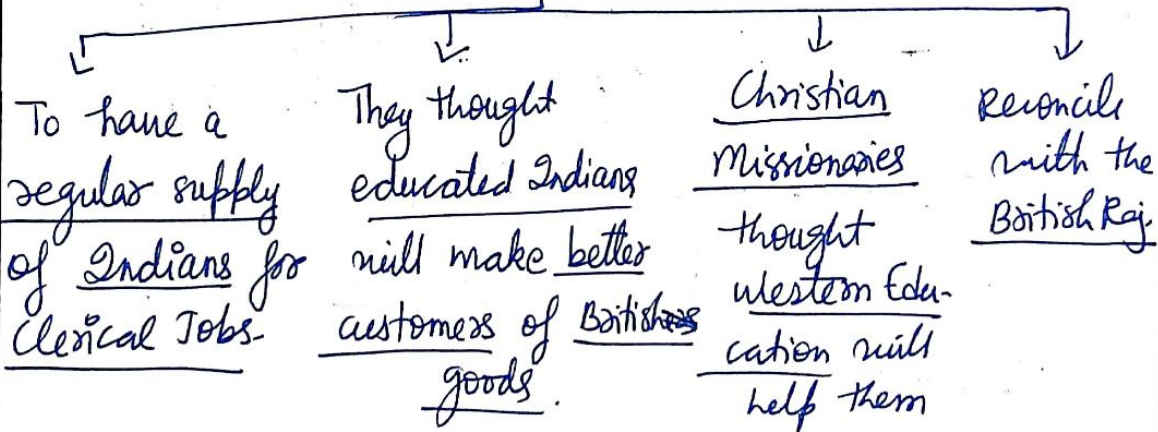 To have a
regular supply
of Indians for
Clerical Jobs.
They thought
educated Indians
will make better
customers of British
goods.
Christian
Missionaries
thought
Western Edu-
cation will
help them
Reconcile
with the
British Raj.